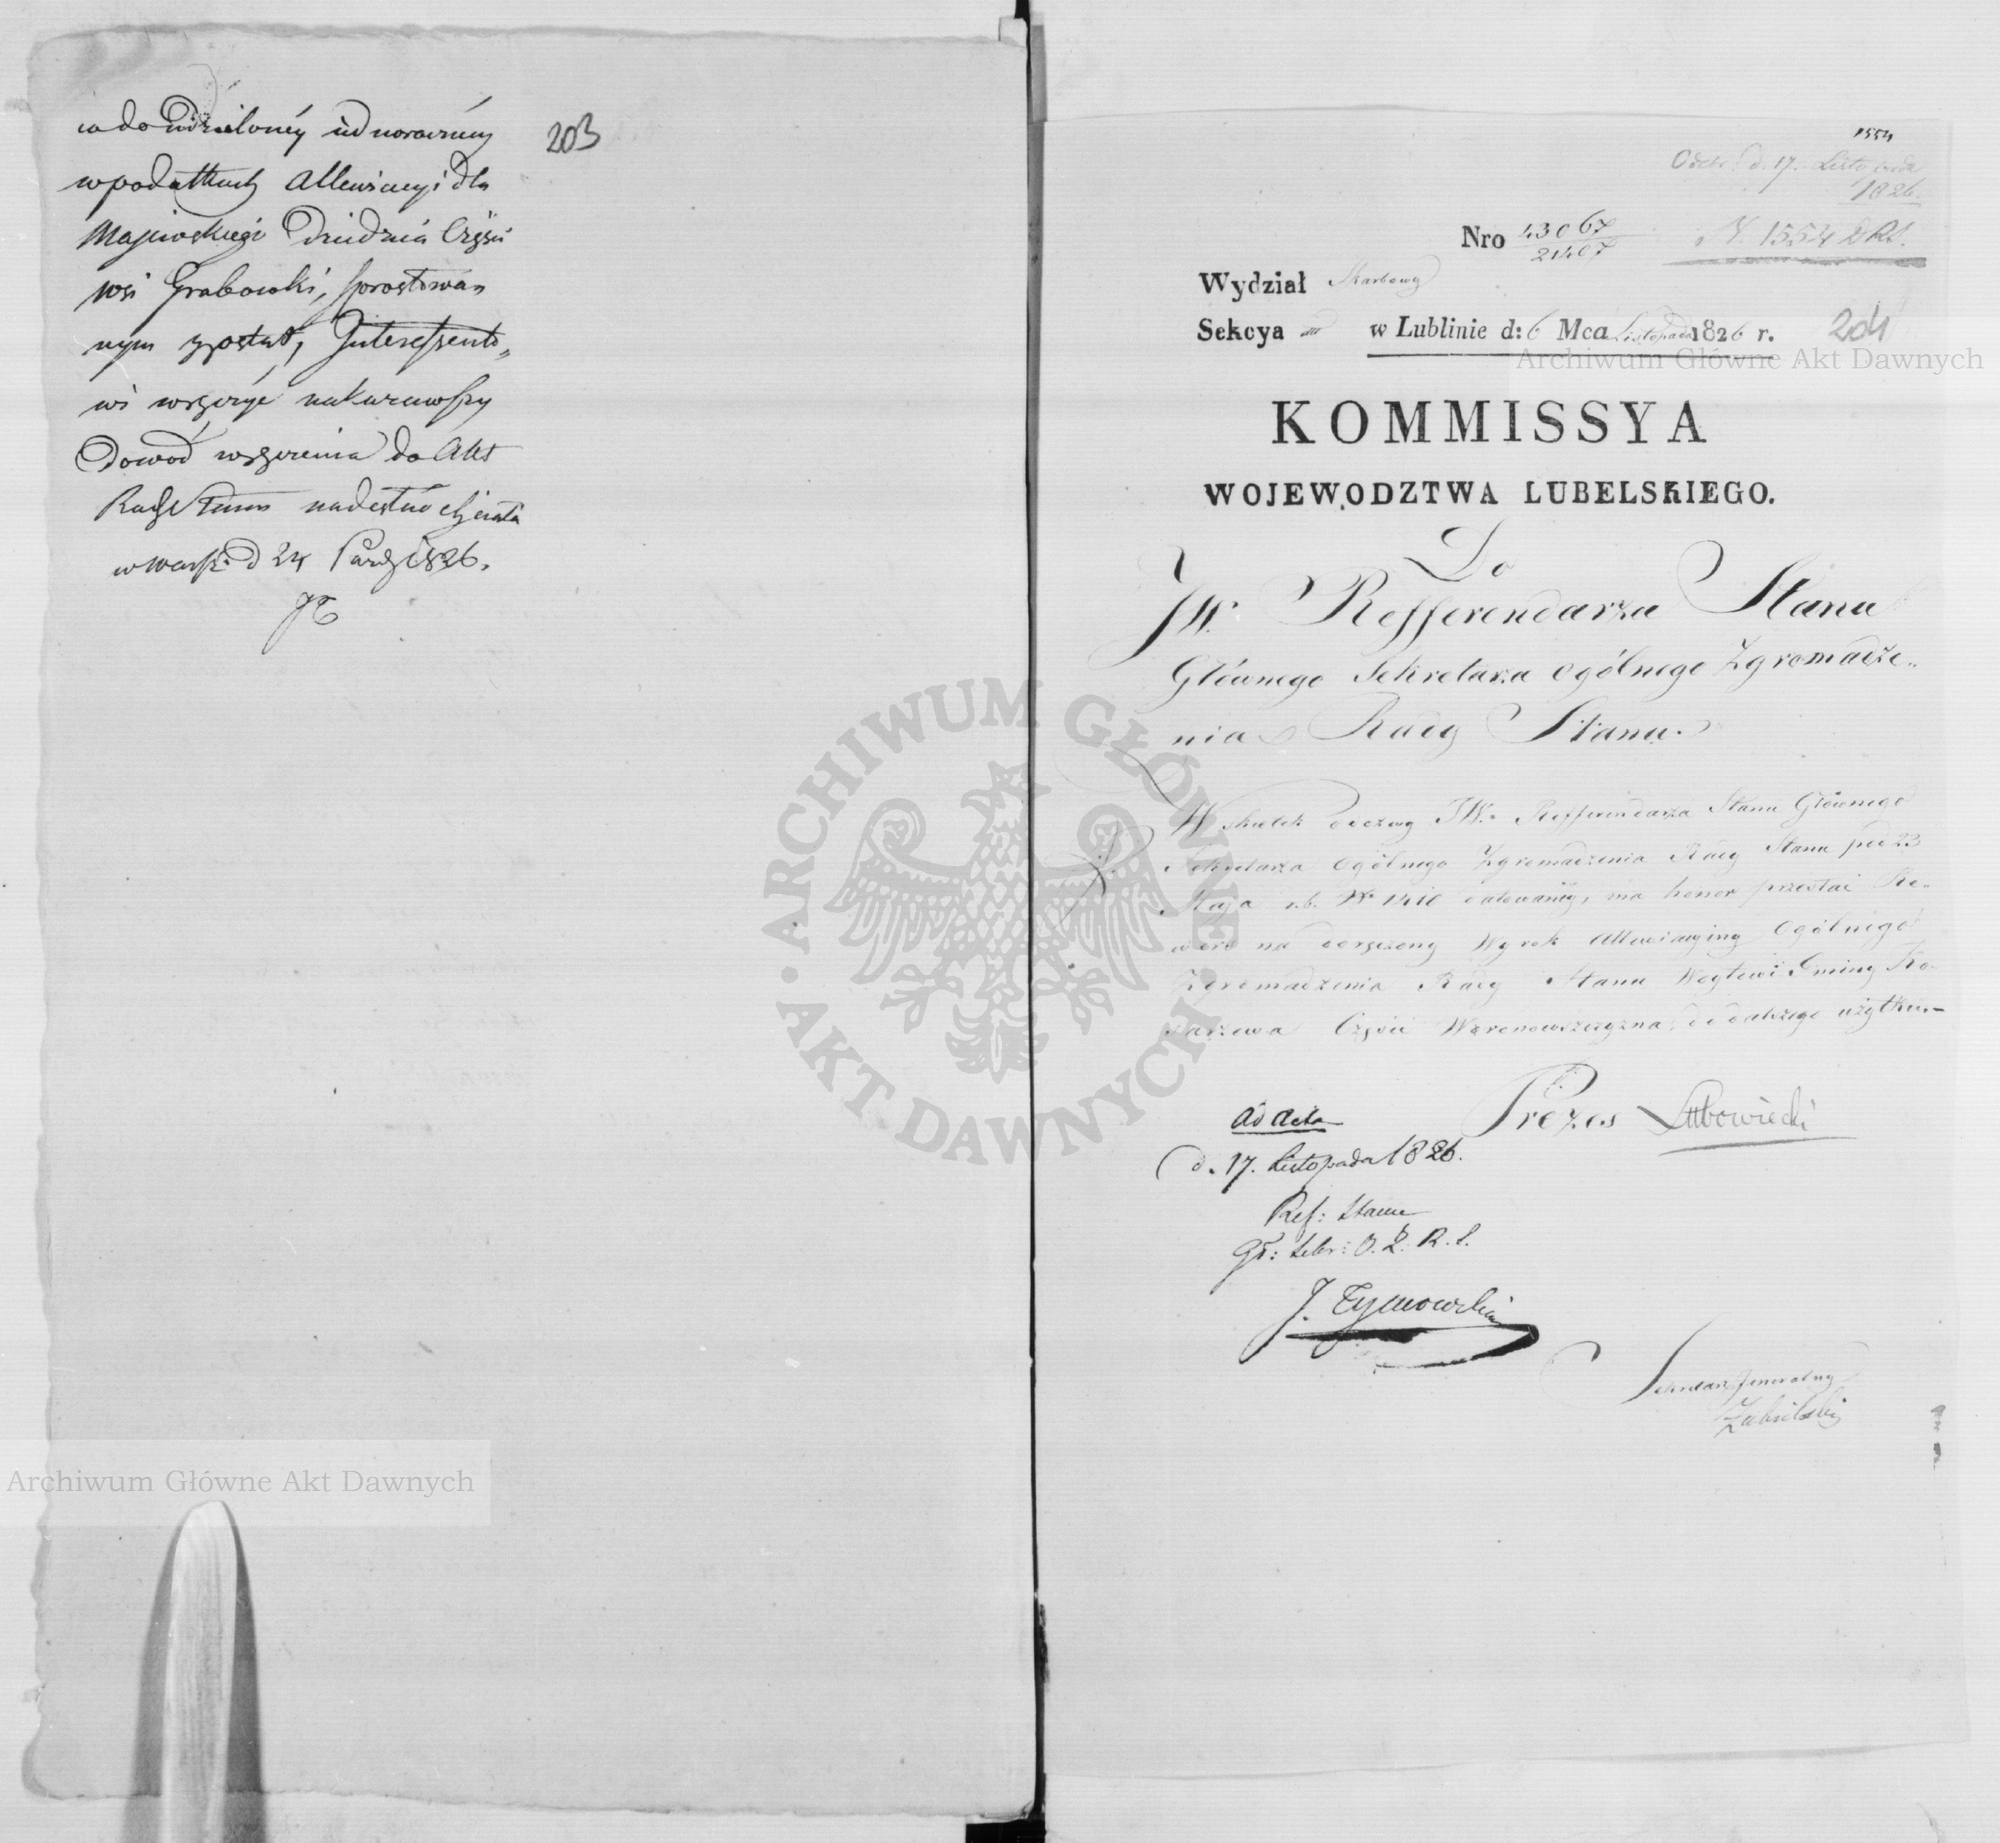 203
w podatkach Allewiacyi dla
Majewskiego Dziedzica Części
wsi Grabowki, sprostowan
nym został, Interessento„
wi wręczyć
Dowód wręczenia do Akt
Rady Stanu nadesłać
w Warsz: d 24 Paźdz 1826.
JT
1554
Odebr. d. 17. Listopada
1826.
N. 1554 DRS.
Nro 43067
21407
Wydział Skarbowy
Sekcya w Lublinie d: 6 Mca Listopada 1826 r.
204
Archiwum Główne Akt Dawnych
KOMMISSYA
WOJEWODZTWA LUBELSKIEGO.
Do
JW. Refferendarza Stanu
Głównego Sekretarza Ogólnego Zgromadze„
nia Rady Stanu.
W skutek odezwy JW. Refferendarza Stanu Głównego
Sekretarza Ogólnego Zgromadzenia Rady Stanu pod 23
Maja r.b. Nr 1410 datowaney, ma honor przesłać Re„
wers na doręczony Wyrok Allewiacyiny Ogólnego
Zgromadzenia Rady Stanu Woytowi Gminy Ko„
darzewa Części do dalszego użytku.—
Prezes Lubowiecki
Ad Acta
d. 17. Listopada 1826.
Ref: Stanu
Gł: Sekr: O. Z. R. S.
J. Tymowski
Sekretarz Jeneralny
ARCHIWUM GŁÓWNE AKT DAWNYCH
Archiwum Główne Akt Dawnych